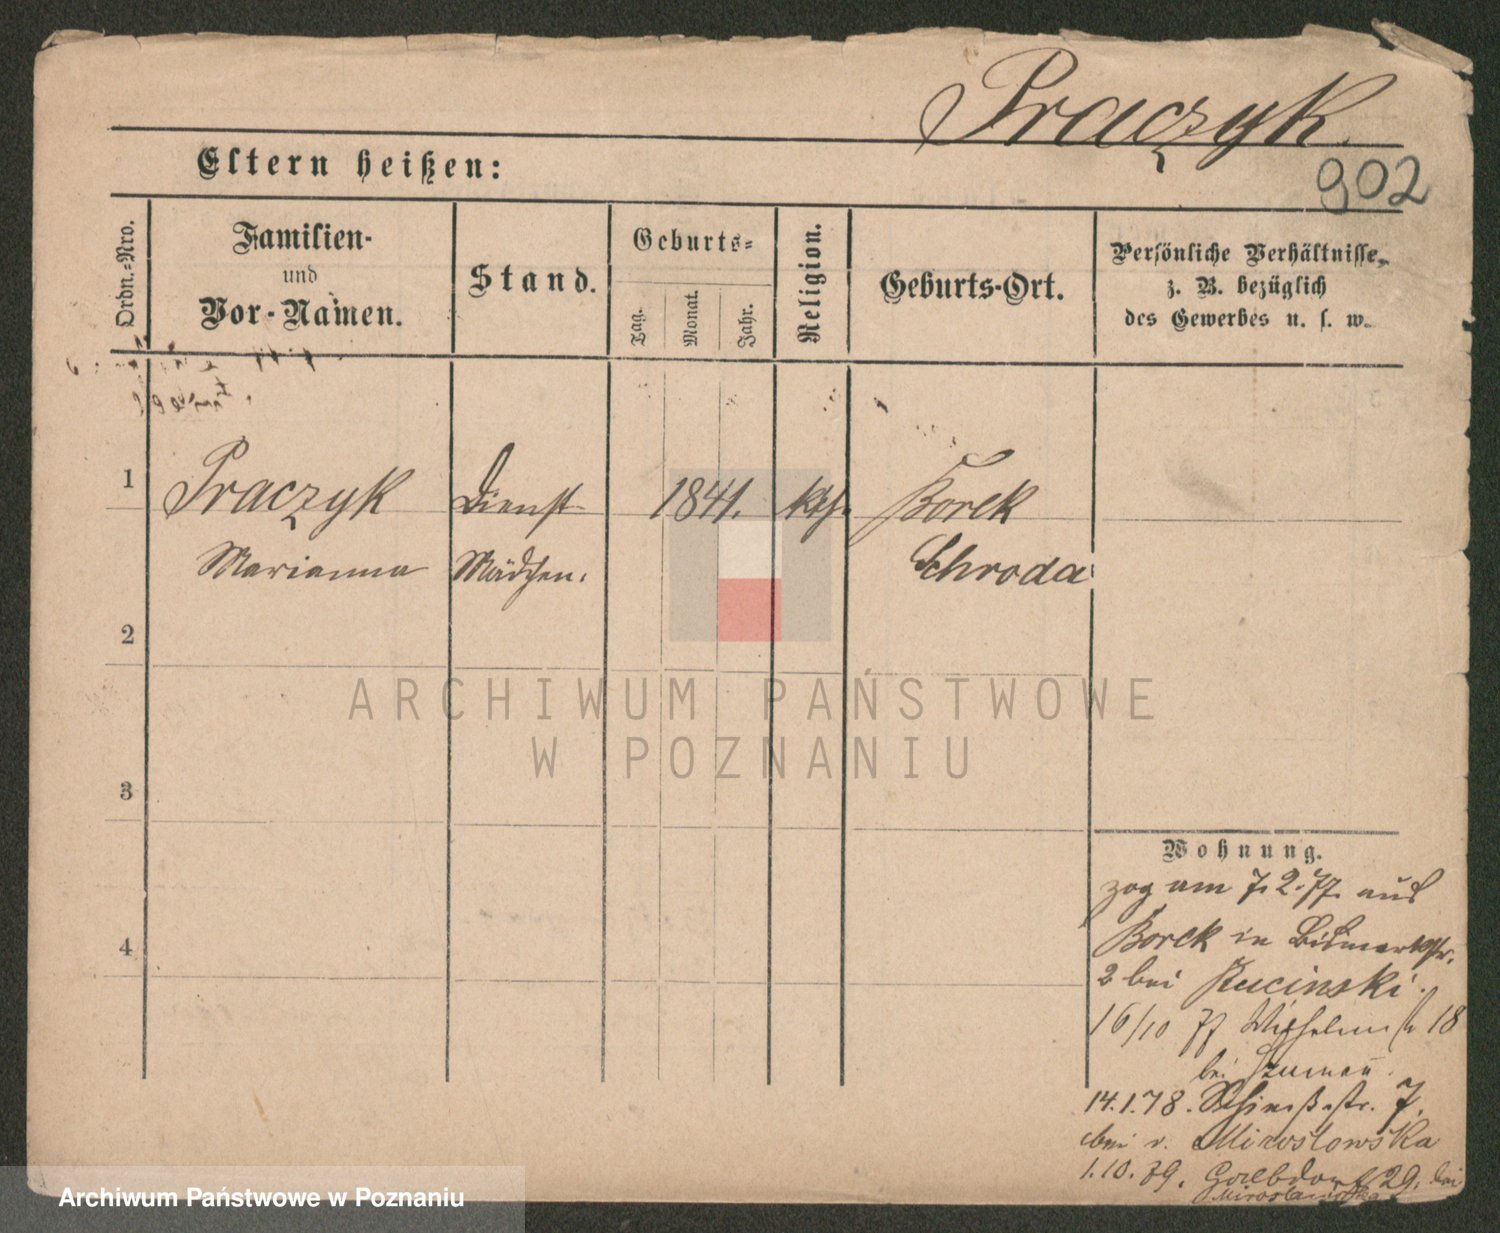 Praczyk.
902
Eltern heißen:
Ordn.-Nro.
Familien-
und
Vor-Namen.
Stand.
Geburts-
Tag.
Monat.
Jahr.
Religion.
Geburts-Ort.
Persönliche Verhältnisse,
z. B. bezüglich
des Gewerbes u. s. w.
1 Praczyk Dienst 1841. kth. Borek
Marianna Mädchen. Schroda
2
3
4
Wohnung.
zog am 7.2.77. aus
Borek in Bismarkstr.
2 bei Rucinski.
16/10 77 Wilhelmstr 18
bei
14.1.78. Schießstr. 7.
bei v. Miroslowska
1.10.79. 29. bei
Miroslawska
ARCHIWUM PAŃSTWOWE
W POZNANIU
Archiwum Państwowe w Poznaniu